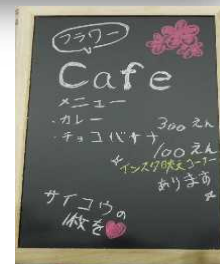 フラワー
Cafe
メニュー
・カレー 300えん
・チョコバナナ 100えん
インスタ映えコーナー
あります
サイコウの
1枚を